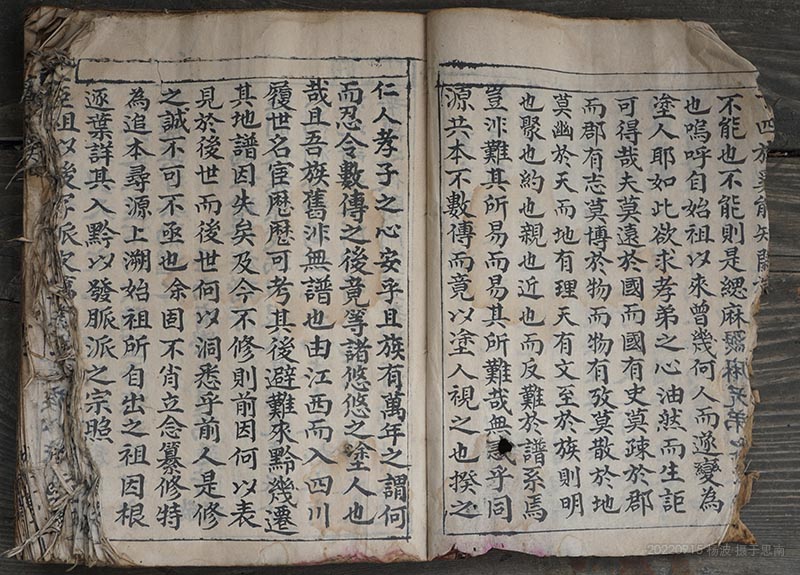 四族奚能知
不能也不能則是緦麻
也嗚呼自始祖以來曾幾何人而遂變為
塗人耶如此欲求孝弟之心油然而生詎
可得哉夫莫遠於國而國有史莫疎於郡
而郡有志莫博於物而物有攷莫散於地
莫幽於天而地有理天有文至於族則明
也聚也約也親也近也而反難於譜系焉
豈泋難其所易而易其所難哉無惑乎同
源共本不數傳而竟以塗人視之也揆之
仁人孝子之心安乎且族有萬年之謂何
而忍令數傳之後竟等諸悠悠之塗人也
哉且吾族舊泋無譜也由江西而入四川
履世名宦歷歷可考其後避難來黔幾遷
其地譜因失矣及今不修則前因何以表
見於後世而後世何以洞悉乎前人是修
之誠不可不亟也余因不肖立念纂修特
為追本尋源上溯始祖所自出之祖因根
逐葉詳其入黔以發脈派之宗照
祖以後
20220915 杨波 摄于思南